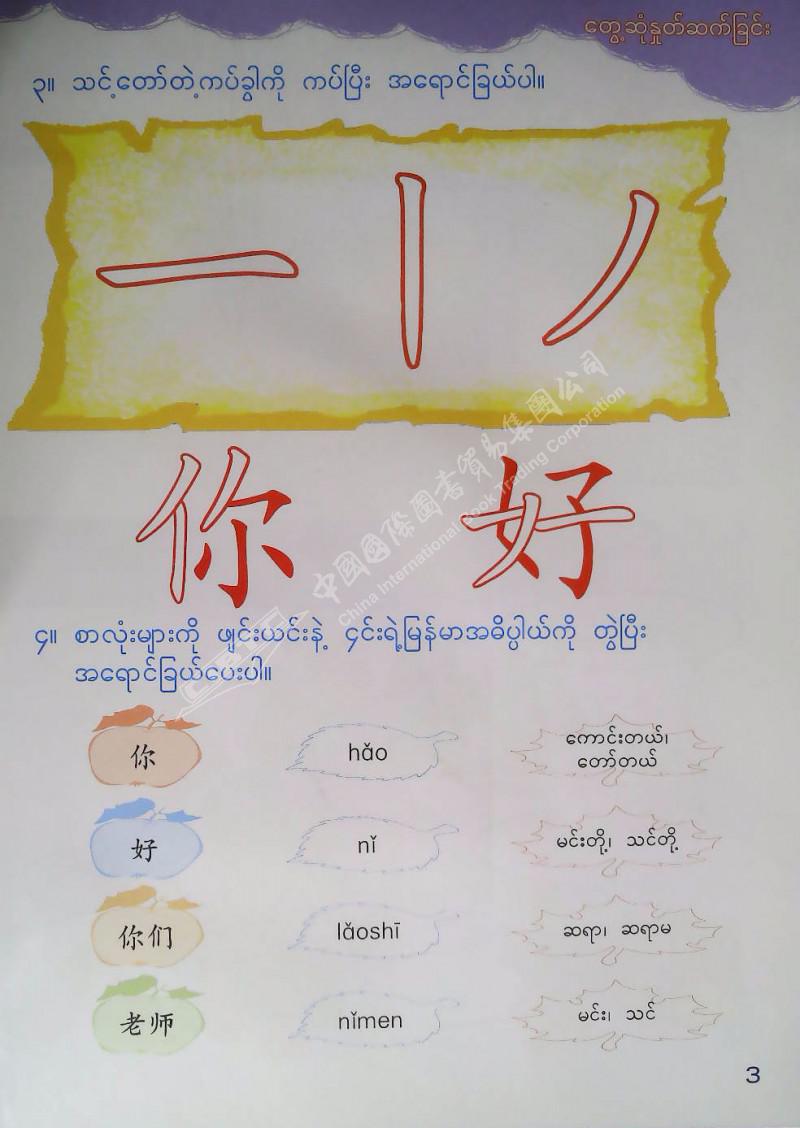 တွေ့ဆုံနှုတ်ဆက်ခြင်း
၃။ သင့်တော်တဲ့ကပ်ခွါကို ကပ်ပြီး အရောင်ခြယ်ပါ။
一 丨 丿
你 好
中國國際圖書貿易集團公司
China International Book Trading Corporation
CIBTC
၄။ စာလုံးများကို ဖျင်းယင်းနဲ့ ၎င်းရဲ့မြန်မာအဓိပ္ပါယ်ကို တွဲပြီး
အရောင်ခြယ်ပေးပါ။
你 hǎo ကောင်းတယ်၊
တော်တယ်
好 nǐ မင်းတို့၊ သင်တို့
你们 lǎoshī ဆရာ၊ ဆရာမ
老师 nǐmen မင်း၊ သင်
3